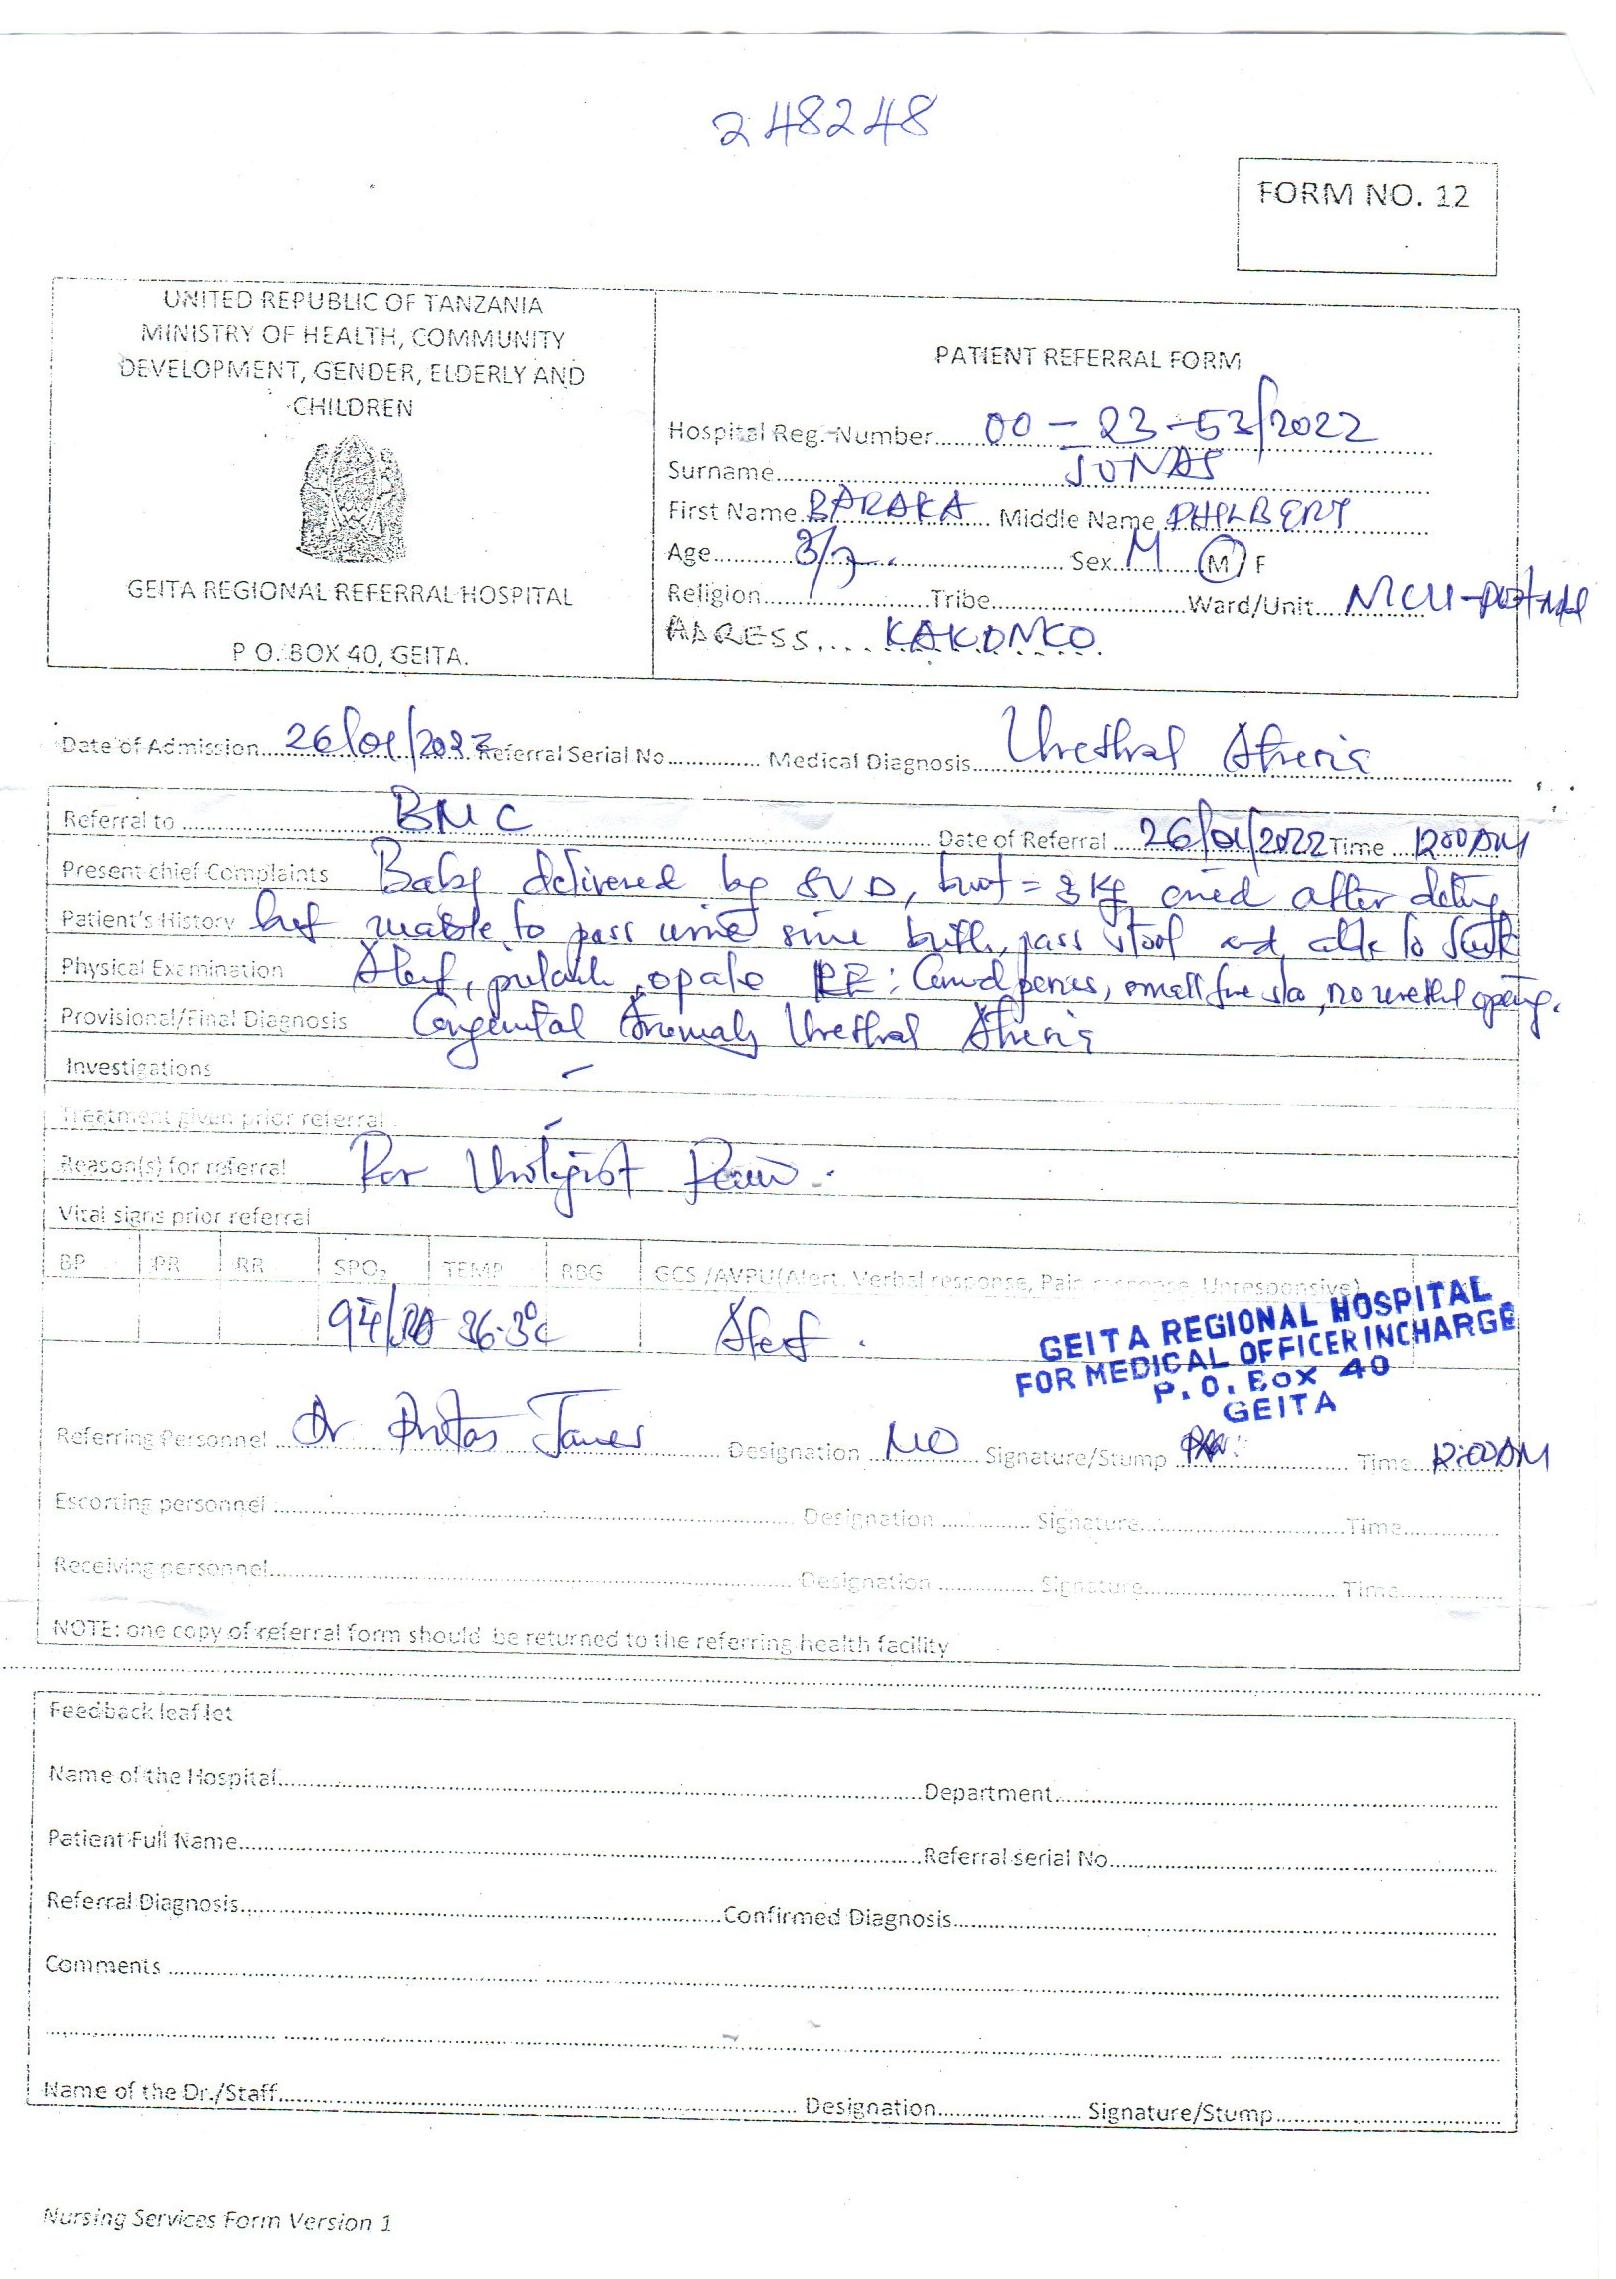 248248
FORM NO. 12
UNITED REPUBLIC OF TANZANIA
MINISTRY OF HEALTH, COMMUNITY
DEVELOPMENT, GENDER, ELDERLY AND
CHILDREN
GEITA REGIONAL REFERRAL HOSPITAL
P O. BOX 40, GEITA.
PATIENT REFERRAL FORM
Hospital Reg. Number 00-23-53/2022
Surname JONAS
First Name BARAKA Middle Name PHILBERT
Age 3/7 Sex M (M)/F
Religion Tribe Ward/Unit
ADRESS KAKONKO
Date of Admission 26/01/2022 Referral Serial No Medical Diagnosis Urethral Atresia
Referral to BMC Date of Referral 26/01/2022 Time 12:00AM
Present chief Complaints Baby delivered by SVD, bwt = 3 Kg cried after
Patient's History but unable to pass urine since birth, pass stool and able to suck
Physical Examination Alert, , opale : penis, small , no urethral opening.
Provisional/Final Diagnosis Congenital Anomaly Urethral Atresia
Investigations -
Treatment given prior referral -
Reason(s) for referral For Urologist Review.
Vital signs prior referral
BP PR RR SPO2 TEMP RBG GCS /AVPU(Alert, Verbal response, Pain response, Unresponsive)
94/RA 36.3°c Alert.
GEITA REGIONAL HOSPITAL
FOR MEDICAL OFFICER INCHARGE
P. O. Box 40
GEITA
Referring Personnel Dr Protas James Designation MO Signature/Stump Time 12:00AM
Escorting personnel Designation Signature Time
Receiving personnel Designation Signature Time
NOTE: one copy of referral form should be returned to the referring health facility
Feedback leaflet
Name of the Hospital Department
Patient Full Name Referral serial No
Referral Diagnosis Confirmed Diagnosis
Comments
Name of the Dr./Staff Designation Signature/Stump
Nursing Services Form Version 1